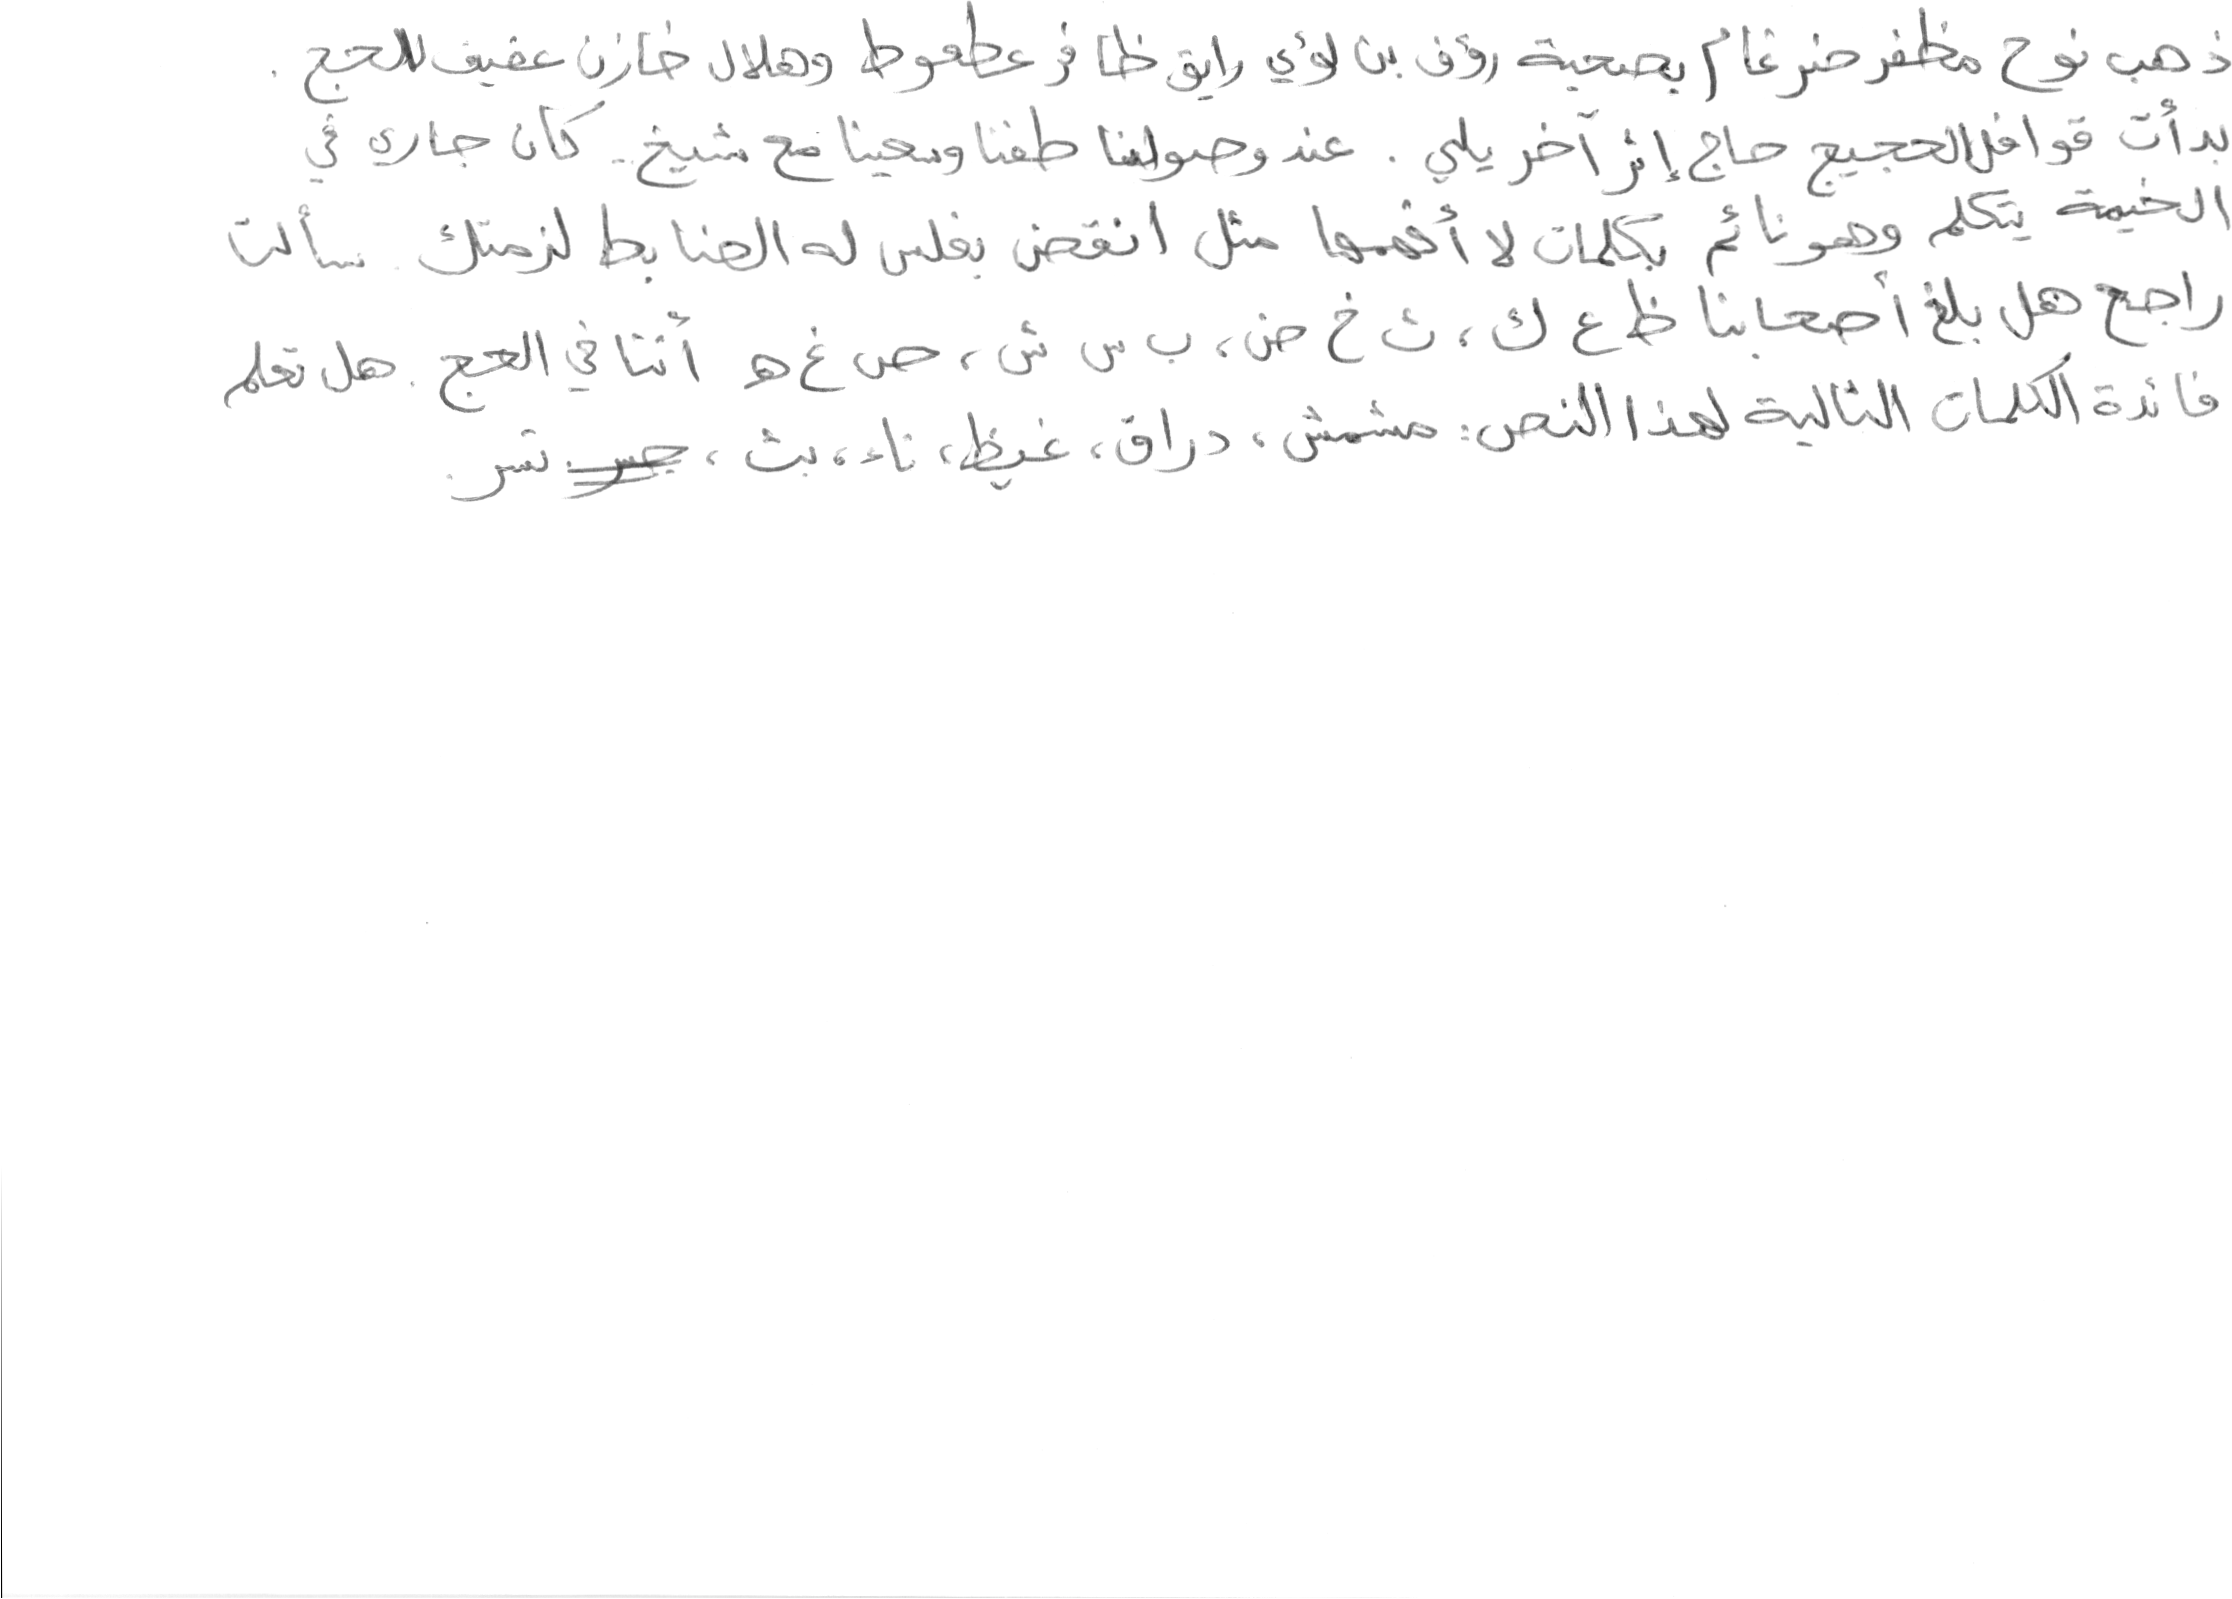 ذهب نوح مظفر ضرغام بصحبة رؤف بن لؤي رايق ظافر عطعوط وهلال خازن عفيف للحج .
بدأت قوافل الحجيج حاج إثر آخر يلي . عند وصولنا طفنا وسعينا مع شيخ . كان جاري في
الخيمة يتكلم وهو نائم بكلمات لا أفهمها مثل انقض بفلس له الضابط لزمتك . سألت
راجح هل بلغ أصحابنا ظ ع ك ، ث خ ض ، ب س ش ، ص غ هـ أننا في الحج . هل تعلم
فائدة الكلمات التالية لهذا النص : مشمش ، دراق ، غيظ ، ناء ، بث ، تسر .